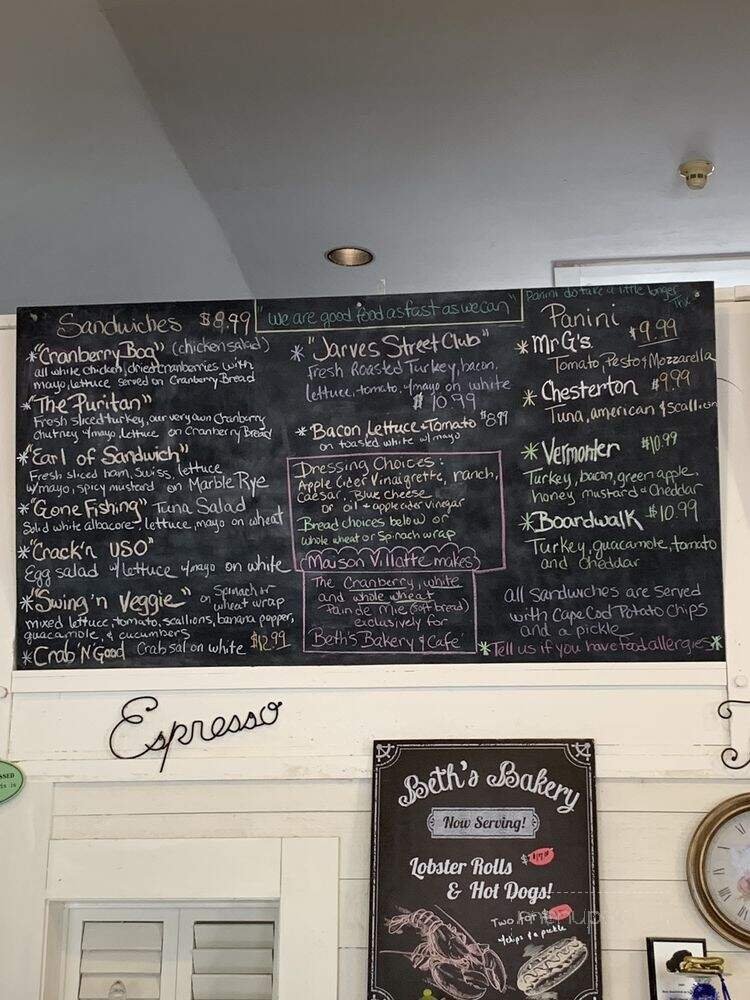 "we are good food as fast as we can"
Panini do take a little longer
Sandwiches $8.99
*"Cranberry Bog" (chicken salad)
all white chicken, dried cranberries with
mayo, lettuce served on Cranberry Bread
*"The Puritan"
Fresh sliced turkey, our very own Cranberry
chutney w/mayo, lettuce on Cranberry Bread
*"Earl of Sandwich"
Fresh sliced ham, Swiss, lettuce
w/mayo, spicy mustard on Marble Rye
*"Gone Fishing" Tuna Salad
Solid white albacore, lettuce, mayo on wheat
*"Crack'n USO"
Egg salad w/lettuce w/mayo on white
*"Swing'n Veggie" on Spinach or
wheat wrap
mixed lettuce, tomato, scallions, banana pepper,
guacamole, & cucumbers
*Crab 'N' Good Crab sal on white $12.99
*"Jarves Street Club"
Fresh Roasted Turkey, bacon,
lettuce, tomato, w/mayo on white
$10.99
*Bacon Lettuce & Tomato $8.99
on toasted white w/mayo
Dressing Choices:
Apple Cider Vinaigrette, ranch,
caesar, Blue cheese
or oil & apple cider vinegar
Bread choices below or
whole wheat or Spinach wrap
Maison Villatte makes
The Cranberry, white
and whole wheat
Pain de Mie (soft bread)
exclusively for
Beth's Bakery & Cafe
Panini
*Mr G's $9.99
Tomato, Pesto & Mozzarella
*Chesterton $9.99
Tuna, american & scallion
*Vermonter $10.99
Turkey, bacon, green apple,
honey mustard & Cheddar
*Boardwalk $10.99
Turkey, guacamole, tomato
and cheddar
all sandwiches are served
with Cape Cod Potato Chips
and a pickle
*Tell us if you have food allergies*
Espresso
Beth's Bakery
Now Serving!
Lobster Rolls
& Hot Dogs!
Two for
w/chips & a pickle